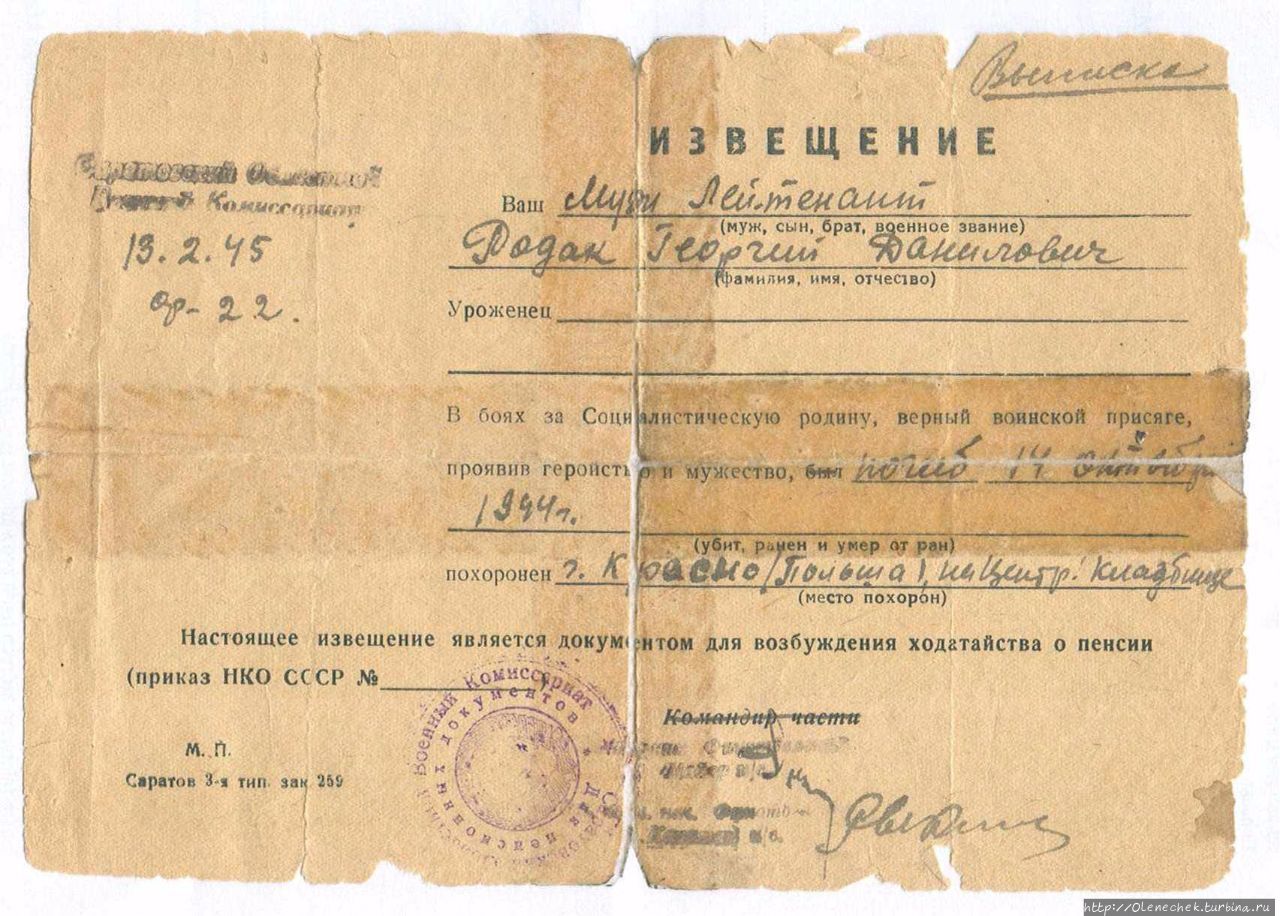 Выписка
ИЗВЕЩЕНИЕ
Областной
Комиссариат
13.2.45
22.
Ваш Муж Лейтенант
(муж, сын, брат, военное звание)
Додак Георгий Данилович
(фамилия, имя, отчество)
Уроженец
В боях за Социалистическую родину, верный воинской присяге,
проявив геройство и мужество, был погиб 14 октября
1944г.
(убит, ранен и умер от ран)
похоронен г. Кросно (Польша), на Центр. кладбище
(место похорон)
Настоящее извещение является документом для возбуждения ходатайства о пенсии
(приказ НКО СССР №
Военный Комиссариат
Для пенсионных документов
Командир части
М. П.
Саратов 3-я тип. зак 259
http://Olenechek.turbina.ru